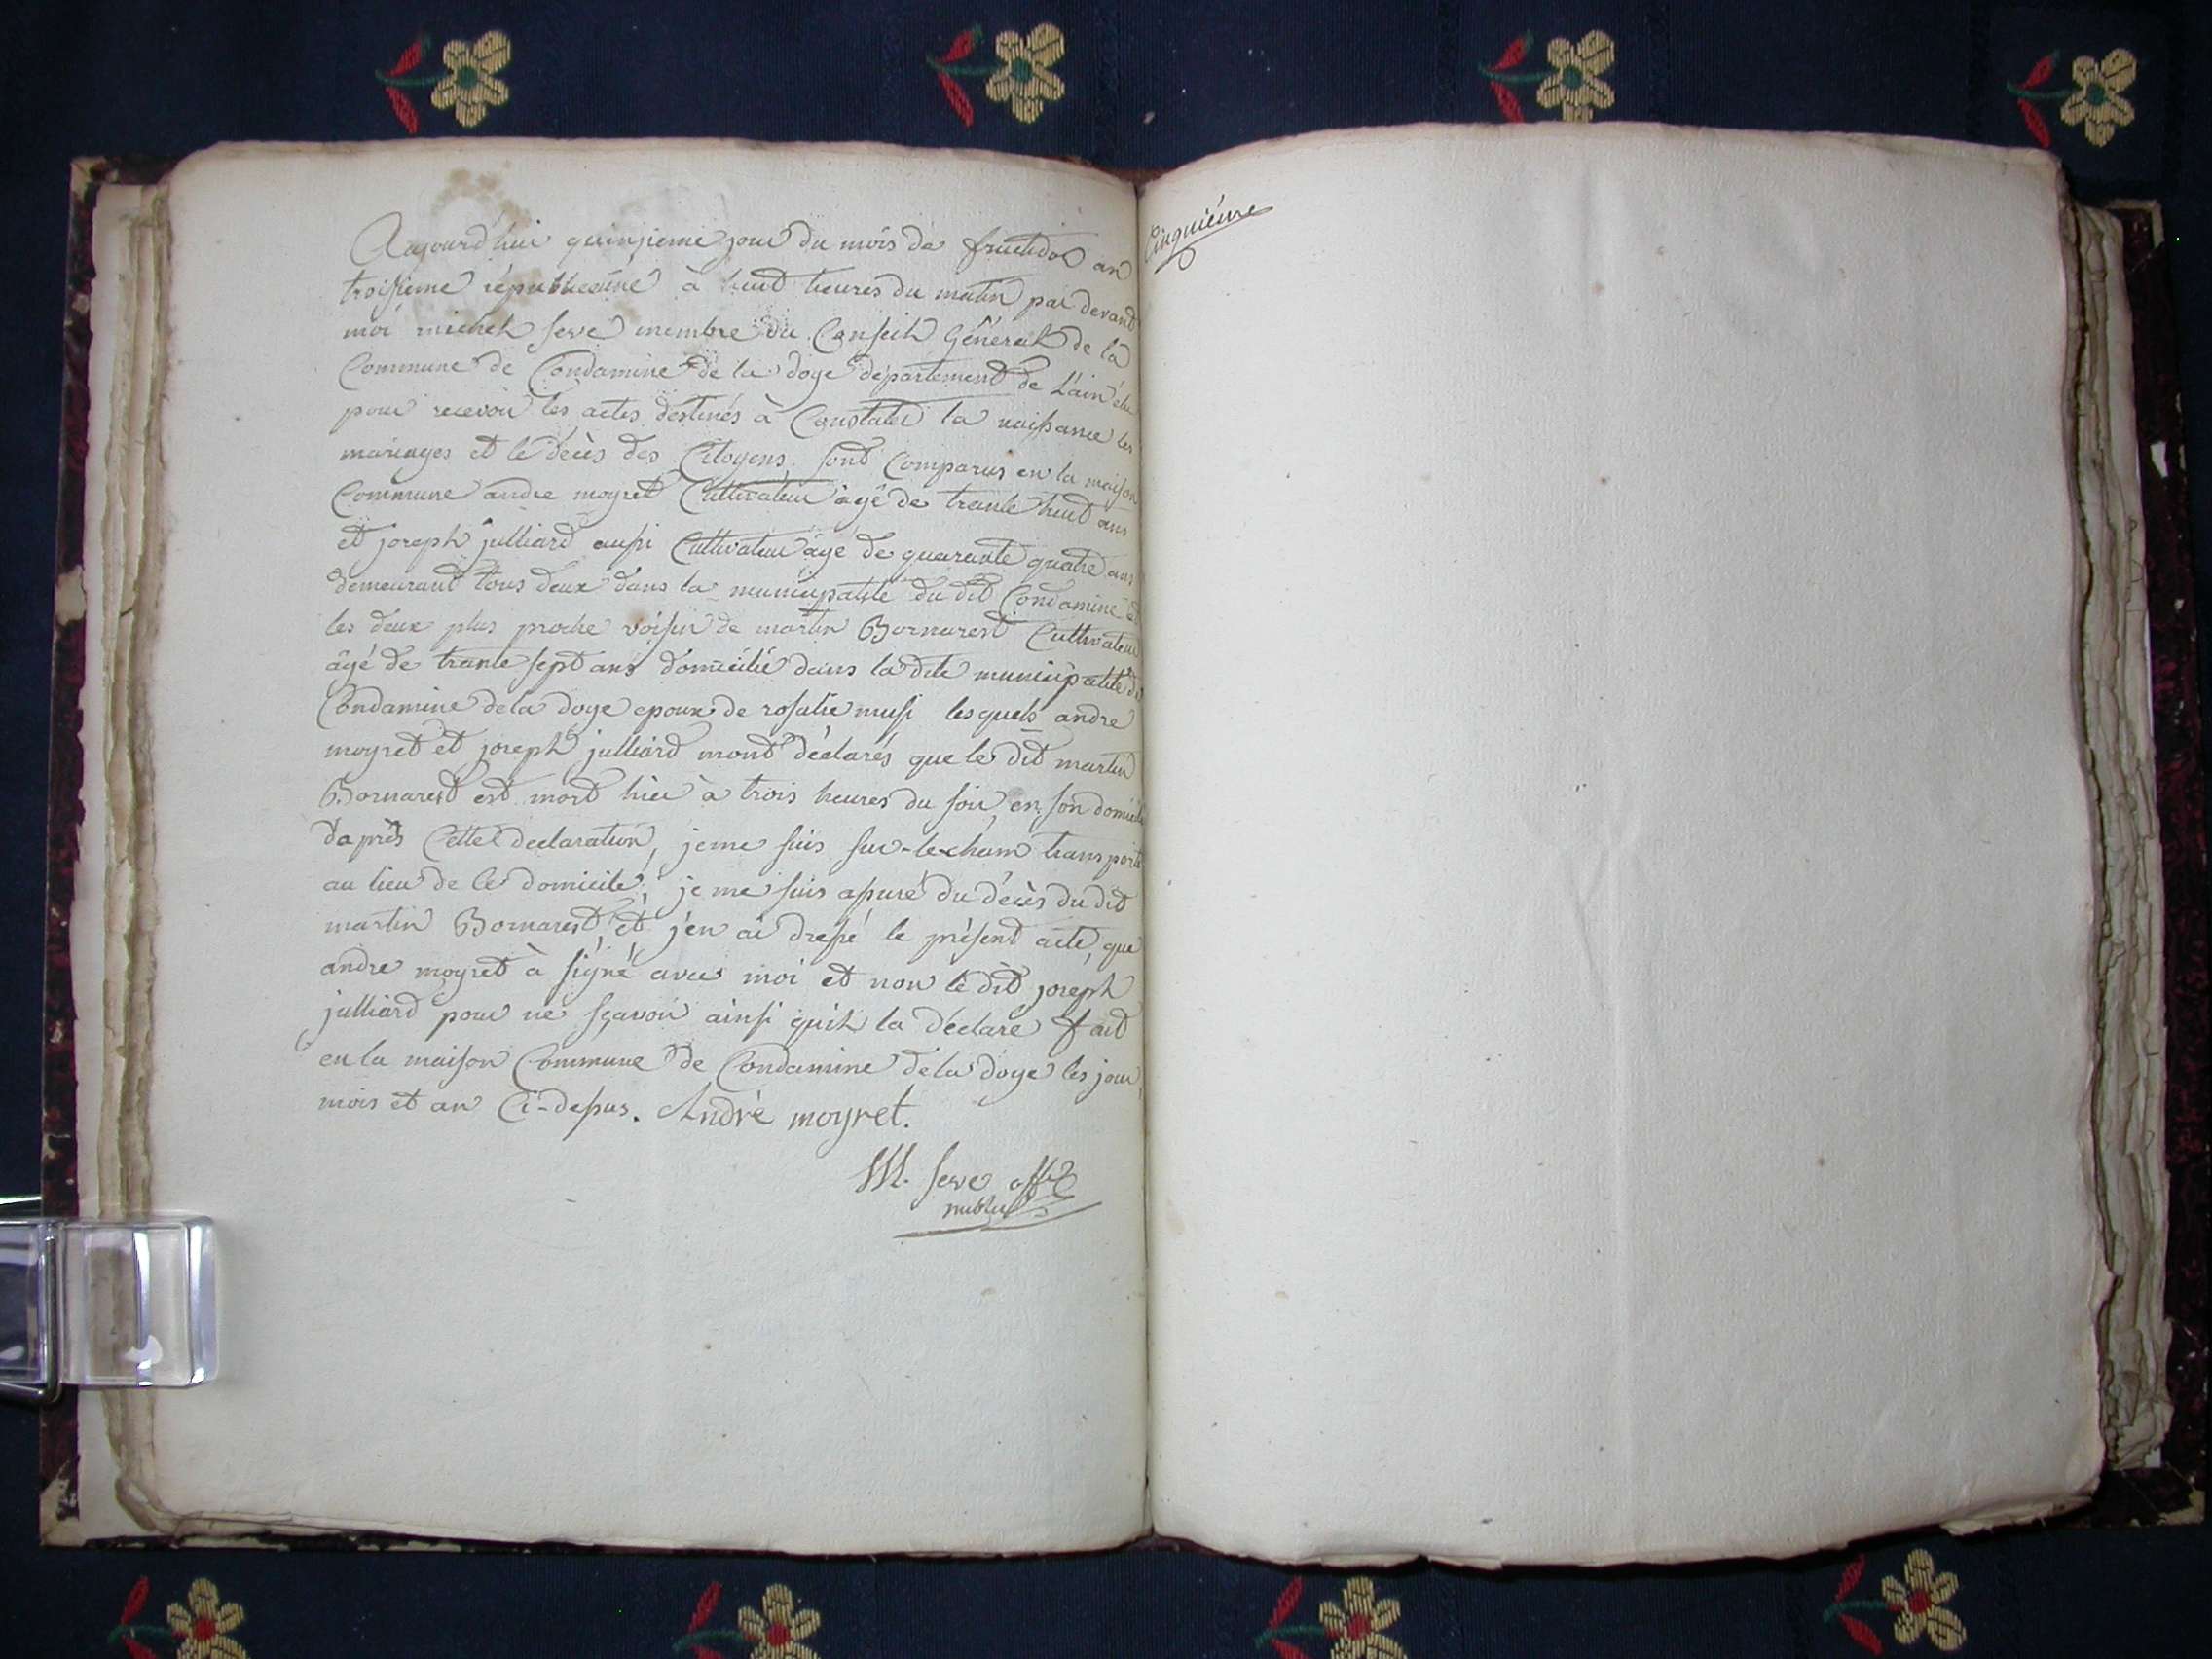 Aujourd'hui quinzieme jour du mois de fructidor an
troisieme républicaine à huit heures du matin par devant
moi michel seve membre du Conseil Général de la
Commune de Condamine de la doye département de L'ain élu
pour recevoir les actes destinés à Constater la naissance les
mariages et le décès des Citoyens, sont Comparus en la maison
Commune andre moyret Cultivateur âgé de trante huit ans
et joseph julliard aussi Cultivateur âgé de quarante quatre ans
demeurant tous deux dans la municipalité du dit Condamine et
les deux plus proche voisin de martin Bornarest Cultivateur
âgé de trante sept ans domicilié dans la dite municipalité de
Condamine de la doye epoux de rosalie musi lesquels andre
moyret et joseph julliard mont déclarés que le dit martin
Bornarest est mort hier à trois heures du soir, en son domicile
daprès Cette declaration, je me suis sur-le-cham transporté
au lieu de Ce domicile, je me suis assuré du décès du dit
martin Bornarest, et j'en ai dressé le présent acte, que
andre moyret à signé avec moi et non le dit joseph
julliard pour ne sçavoir ainsi quil la déclaré fait
en la maison Commune de Condamine de la doye les jour,
mois et an Ci-dessus. André moyret.
M. seve offi
public
Cinquiéme